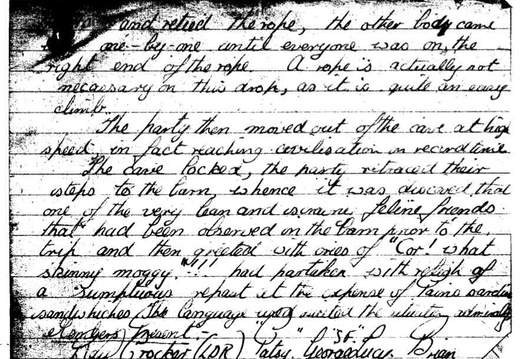 and retied the rope, the other body came
one-by-one until everyone was on the
right end of the rope. A rope is actually not
necassary on this drop, as it is quite an easy
climb.
The party then moved out of the cave at high
speed, in fact reaching civilisation in record time.
The cave locked, the party retraced their
steps to the barn, whence it was discovered that
one of the very lean and scrawny feline friends
that had been observed in the barn prior to the
trip and then greeted with cries of "Cor! what
skinny moggy."!!! had partaken with relish of
a sumptuous repast at the expense of Iains sardine
sandwhiches. The language used suited the situation admirably
Members Present:-
Crocker (LDR) Patsy, Brian